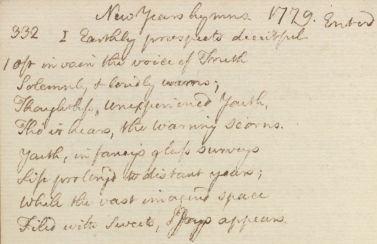 New Years hymns. 1779. Enterd
332 I Earthly prospects deceitful
1 Oft in vain the voice of Truth
Solemnly & loudly warns;
Thoughtless, Unexperienced Youth,
Tho' it hears, the Warning Scorns.
Youth, in fancy's glass surveys
Life prolong'd to distant years;
While the vast imagin'd space
Fill'd with Sweets, & Joys appears.